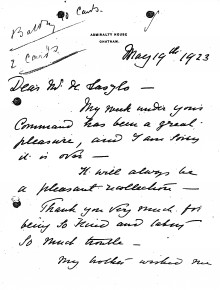 2 cards
ADMIRALTY HOUSE
CHATHAM.
May 19th 1923
Dear Mr de Laszlo –
My week under your
Command has been a great
pleasure, and I am sorry
it is over –
It will always be
a pleasant recollection –
Thank you very much for
being so kind and taking
so much trouble –
My mother wished me